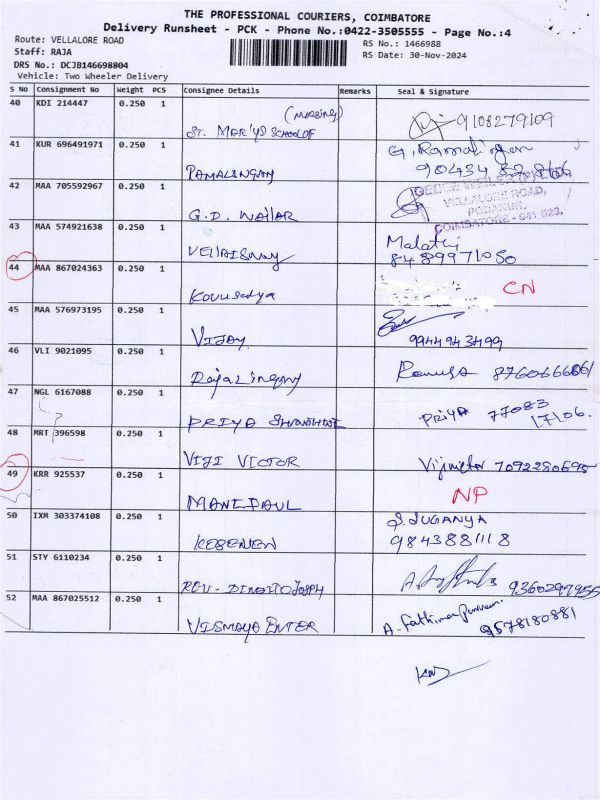 THE PROFESSIONAL COURIERS, COIMBATORE
Delivery Runsheet - PCK - Phone No.:0422-3505555 - Page No.:4
Route: VELLALORE ROAD
RS No.: 1466988
Staff: RAJA
RS Date: 30-Nov-2024
DRS No.: DCJB146698804
Vehicle: Two Wheeler Delivery
S No Consignment No Weight PCS Consignee Details Remarks Seal & Signature
40 KDI 214447 0.250 1
(NURSING)
ST. MARY'S SCHOOL OF
9108279109
41 KUR 696491971 0.250 1
RAMALINGAM
G. Ramalingam
42 MAA 705592967 0.250 1
G.D.
VELLALORE ROAD,
PODANUR,
COIMBATORE - 641 023.
43 MAA 574921638 0.250 1
VELLAISWAY
Malathi
8489971050
44 MAA 867024363 0.250 1
CN
45 MAA 576973195 0.250 1
VIJAY
9944943499
46 VLI 9021095 0.250 1
RajaLingam
8760666861
47 NGL 6167088 0.250 1
PRIYA
PRIYA 77083
17106.
48 MRT 396598 0.250 1
VIJI VICTOR
Vijivictor 7092280695
49 KRR 925537 0.250 1
MANIPAUL
NP
50 IXM 303374108 0.250 1
S. SUGANYA
9843881118
51 STY 6110234 0.250 1
REV-
9360297955
52 MAA 867025512 0.250 1
VISMAYA ENTER
A. Fathima
9578180881